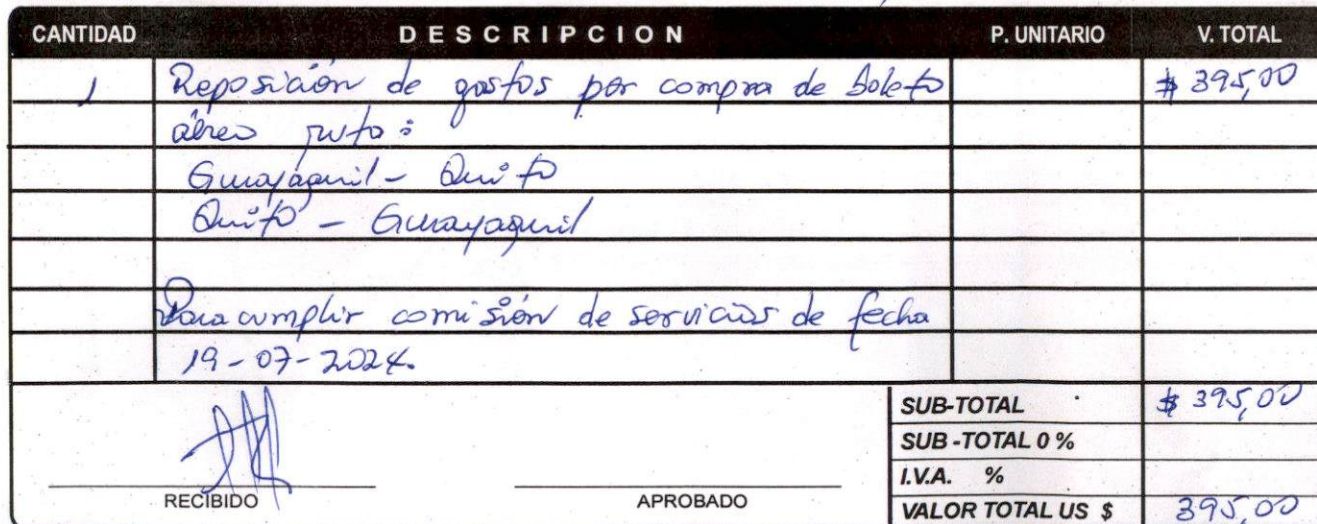 CANTIDAD DESCRIPCION P. UNITARIO V. TOTAL
1 Reposición de gastos por compra de boleto $ 395,00
aéreo ruta:
Guayaquil - Quito
Quito - Guayaquil
Para cumplir comisión de servicios de fecha
19-07-2024.
SUB-TOTAL $ 395,00
SUB-TOTAL 0 %
I.V.A. %
RECIBIDO APROBADO VALOR TOTAL US $ 395,00